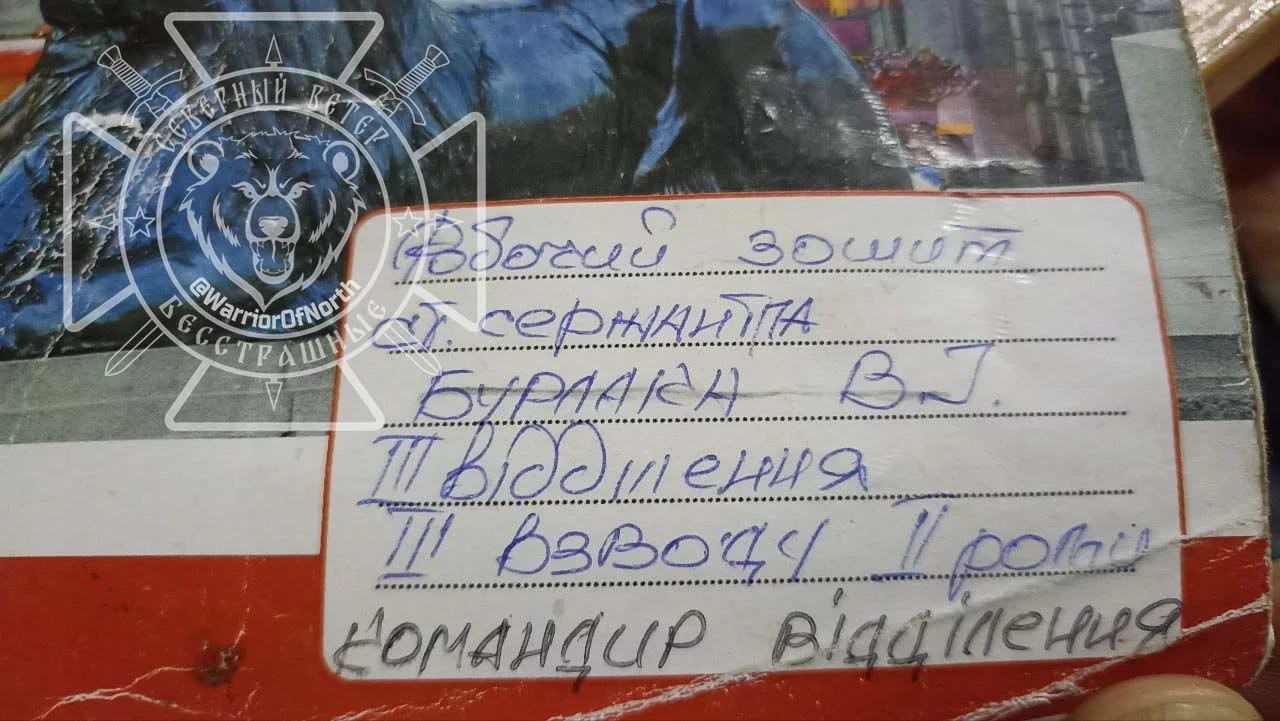 СЕВЕРНЫЙ ВЕТЕР
@WarriorOfNorth
БЕССТРАШНЫЕ
Робочий зошит
ст. сержанта
Бурлака В.І.
III відділення
III взводу II роти
командир відділення